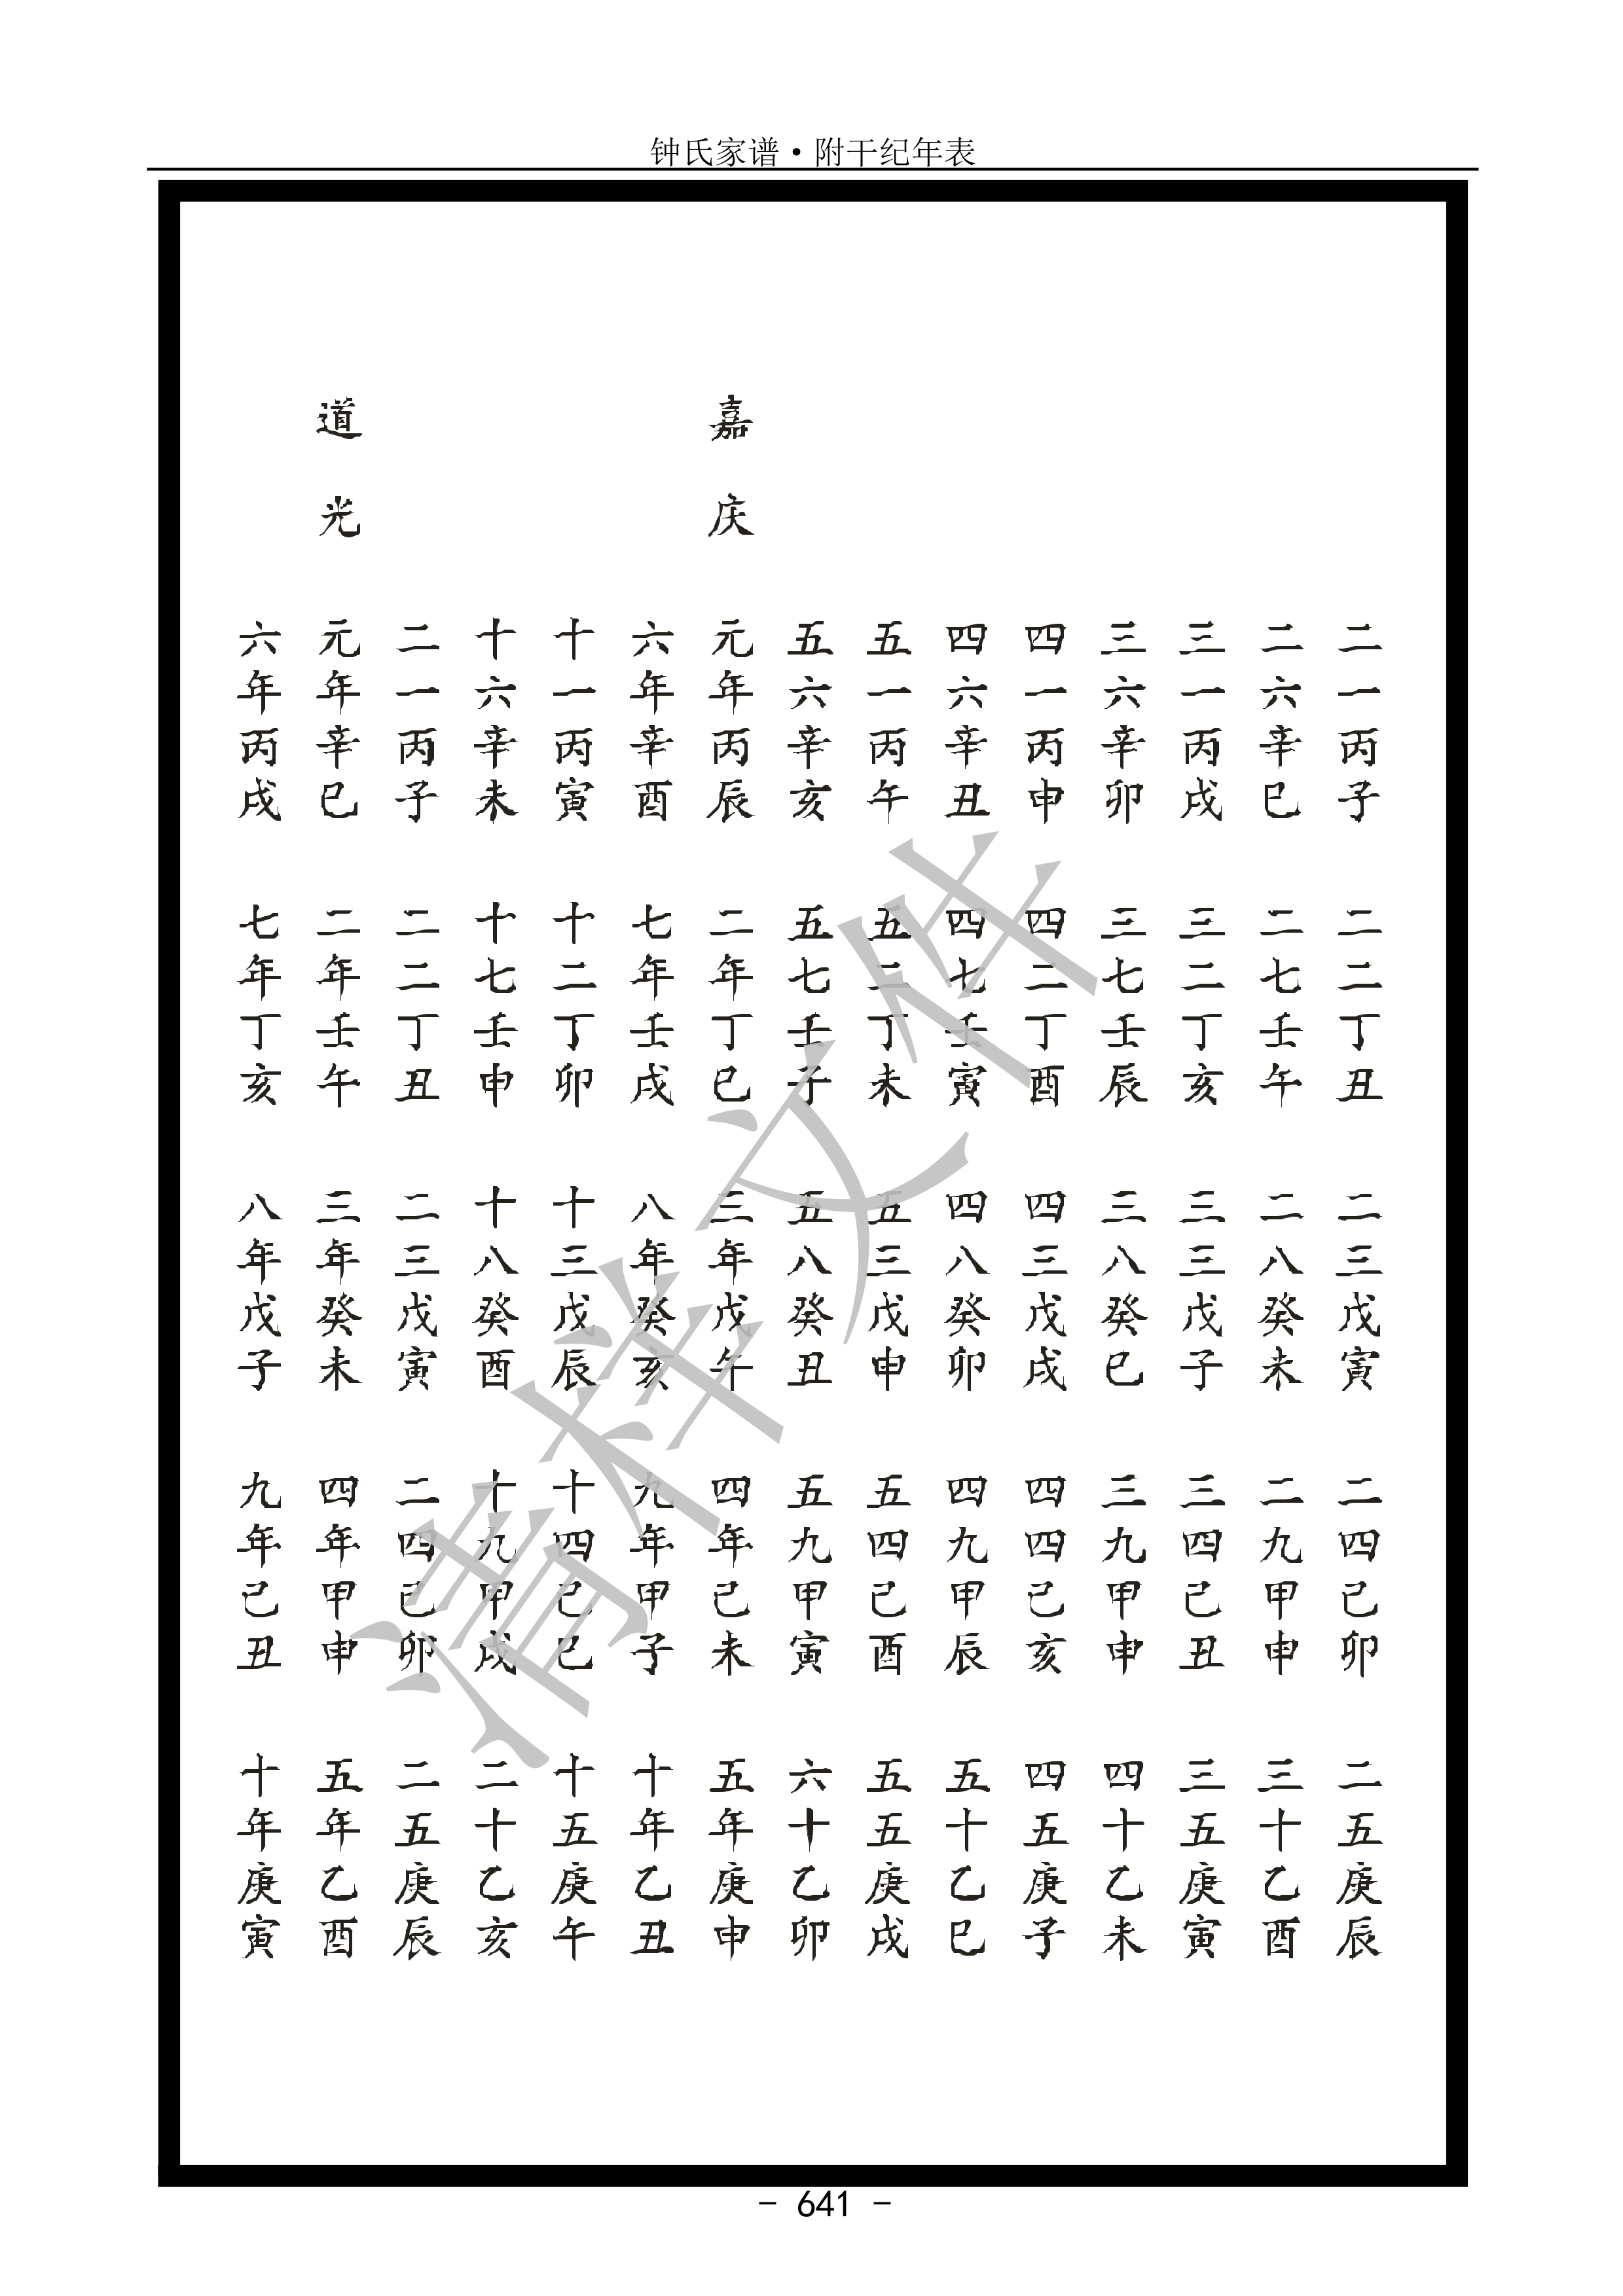 钟氏家谱·附干纪年表
二一丙子 二二丁丑 二三戊寅 二四己卯 二五庚辰
二六辛巳 二七壬午 二八癸未 二九甲申 三十乙酉
三一丙戌 三二丁亥 三三戊子 三四己丑 三五庚寅
三六辛卯 三七壬辰 三八癸巳 三九甲申 四十乙未
四一丙申 四二丁酉 四三戊戌 四四己亥 四五庚子
四六辛丑 四七壬寅 四八癸卯 四九甲辰 五十乙巳
五一丙午 五二丁未 五三戊申 五四己酉 五五庚戌
五六辛亥 五七壬子 五八癸丑 五九甲寅 六十乙卯
嘉庆 元年丙辰 二年丁巳 三年戊午 四年己未 五年庚申
六年辛酉 七年壬戌 八年癸亥 九年甲子 十年乙丑
十一丙寅 十二丁卯 十三戊辰 十四己巳 十五庚午
十六辛未 十七壬申 十八癸酉 十九甲戌 二十乙亥
二一丙子 二二丁丑 二三戊寅 二四己卯 二五庚辰
道光 元年辛巳 二年壬午 三年癸未 四年甲申 五年乙酉
六年丙戌 七年丁亥 八年戊子 九年己丑 十年庚寅
清样文件
- 641 -